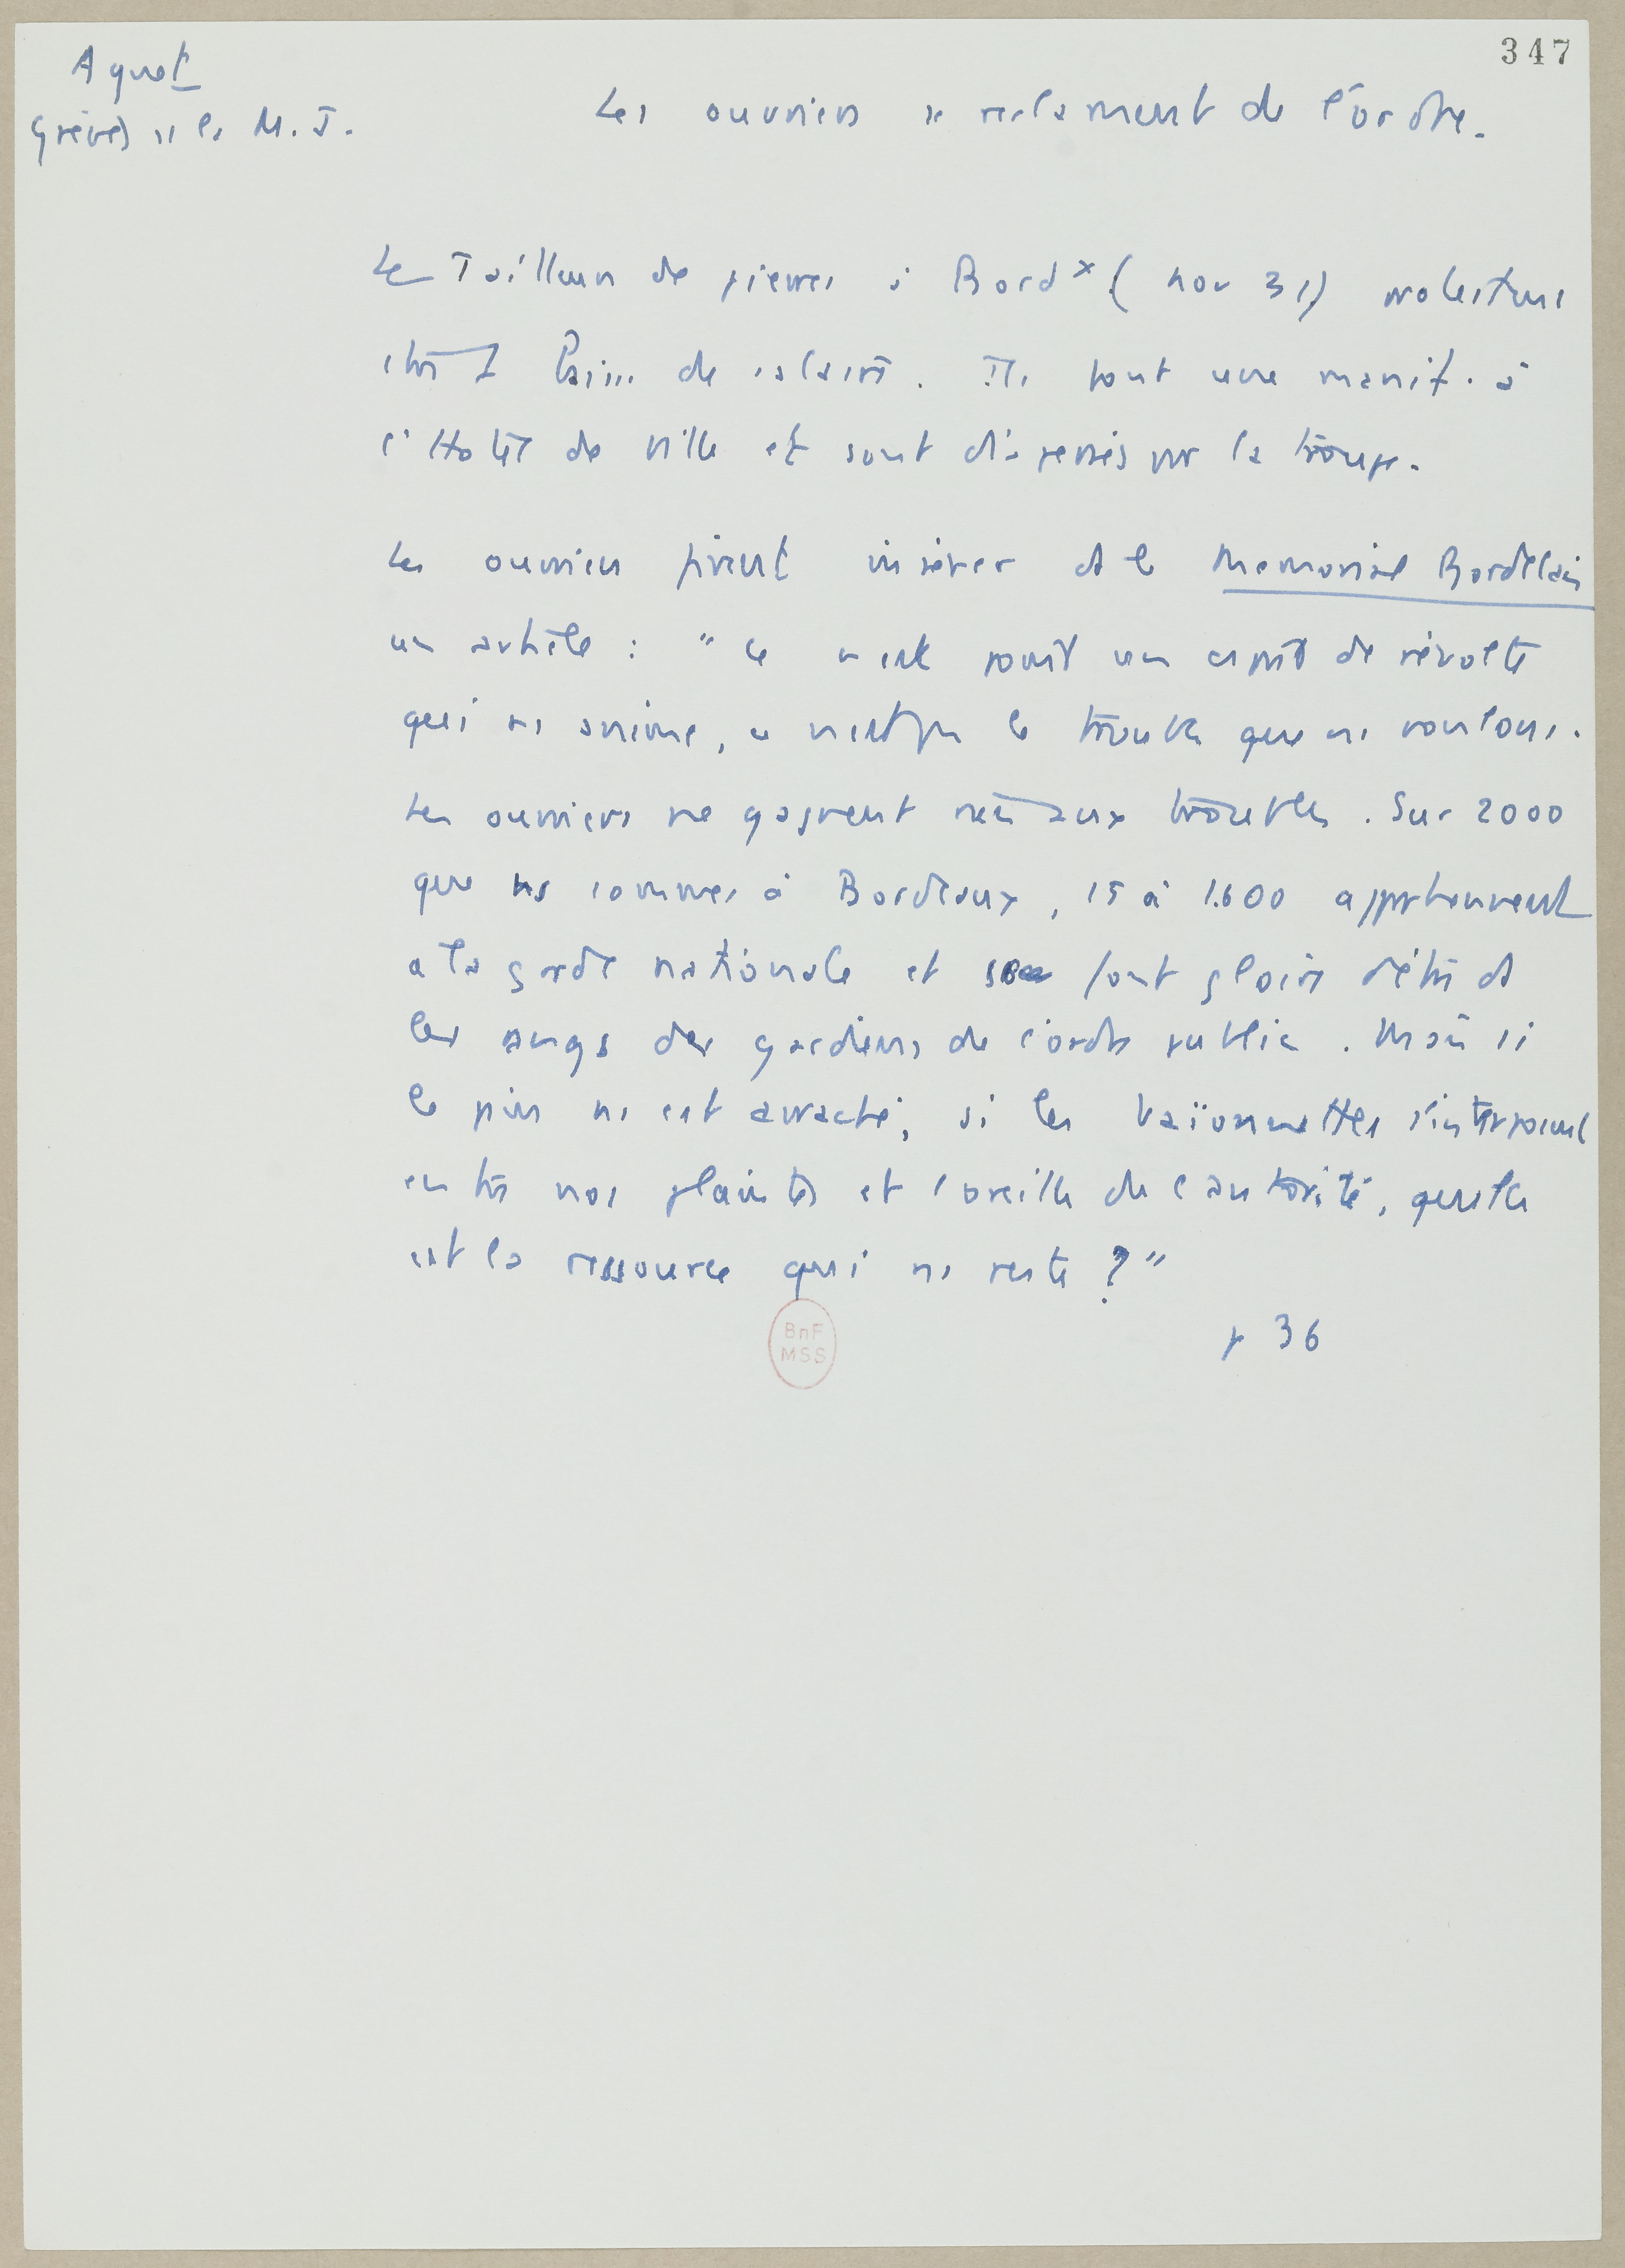 347
Aguet
Grèves ss la M. J.
Les ouvriers se réclament de l'ordre.
Les Tailleurs de pierres à Bordx (nov 31) protestent
ctre 1 baisse de salaire. Ils font une manif. à
l'Hotel de ville et sont dispersés par la troupe.
Les ouvriers firent insérer ds le Memorial Bordelais
un article : "Ce n'est point un esprit de révolte
qui ns anime, ce n'est pas le trouble que ns voulons.
Les ouvriers ne gagnent rien aux troubles. Sur 2000
que ns sommes à Bordeaux, 15 à 1.600 appartiennent
a la garde nationale et se font gloire d'être ds
les rangs des gardiens de l'ordre public. Mais si
le pain ns est arraché, si les baïonnettes s'interposent
entre nos plaintes et l'oreille de l'autorité, quelle
est la ressource qui ns reste ?"
p 36
BnF
MSS